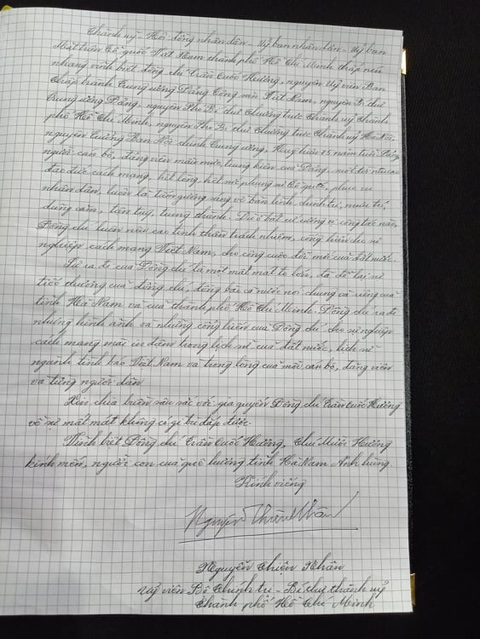 Thành ủy - Hội đồng nhân dân - Ủy ban nhân dân - Ủy ban
Mặt trận Tổ quốc Việt Nam thành phố Hồ Chí Minh thắp nén
nhang vĩnh biệt đồng chí Trần Quốc Hương, nguyên Ủy viên Ban
Chấp hành Trung ương Đảng Cộng sản Việt Nam, nguyên Bí thư
Trung ương Đảng, nguyên Phó Bí thư Thường trực Thành ủy Thành
phố Hồ Chí Minh, nguyên Phó Bí thư Thường trực Thành ủy Hà Nội,
nguyên Trưởng Ban Nội chính Trung ương, Huy hiệu năm tuổi Đảng
người cán bộ, đảng viên mẫu mực, trung kiên của Đảng, suốt đời nêu cao
đạo đức cách mạng, hết lòng, hết sức phụng sự Tổ quốc, phục vụ
nhân dân, luôn là tấm gương sáng về bản lĩnh chính trị, mưu trí,
dũng cảm, tận tụy, trung thành. Dù ở bất cứ cương vị công tác nào,
Đồng chí luôn nêu cao tinh thần trách nhiệm, cống hiến cho sự
nghiệp cách mạng Việt Nam, cho công cuộc đổi mới của đất nước.
Sự ra đi của Đồng chí là một mất mát to lớn, đã để lại sự
tiếc thương của đồng chí, đồng bào cả nước nói chung và riêng của
tỉnh Hà Nam và của thành phố Hồ Chí Minh. Đồng chí ra đi
nhưng hình ảnh và những cống hiến của Đồng chí cho sự nghiệp
cách mạng mãi in đậm trong lịch sử của đất nước, lịch sử
ngành tình báo Việt Nam và trong lòng của mỗi cán bộ, đảng viên
và từng người dân.
Xin chia buồn sâu sắc với gia quyến Đồng chí Trần Quốc Hương
về sự mất mát không có gì bù đắp được.
Vĩnh biệt Đồng chí Trần Quốc Hương, Chú Mười Hương
kính mến, người con của quê hương tỉnh Hà Nam Anh hùng.
Kính viếng
Nguyễn Thiện Nhân
Nguyễn Thiện Nhân
Ủy viên Bộ Chính trị - Bí thư thành ủy
Thành phố Hồ Chí Minh